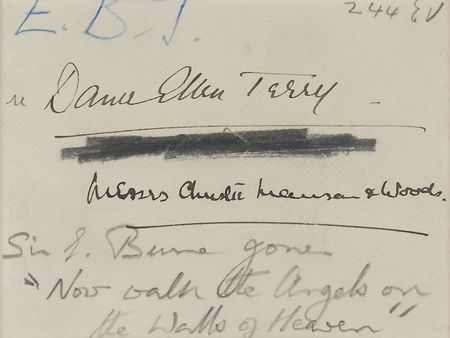 E. B. J. 244 EV
re Dame Ellen Terry
Messrs Christie Manson & Woods.
Sir E. Burne Jones
"Now walk the Angels on
the Walls of Heaven"